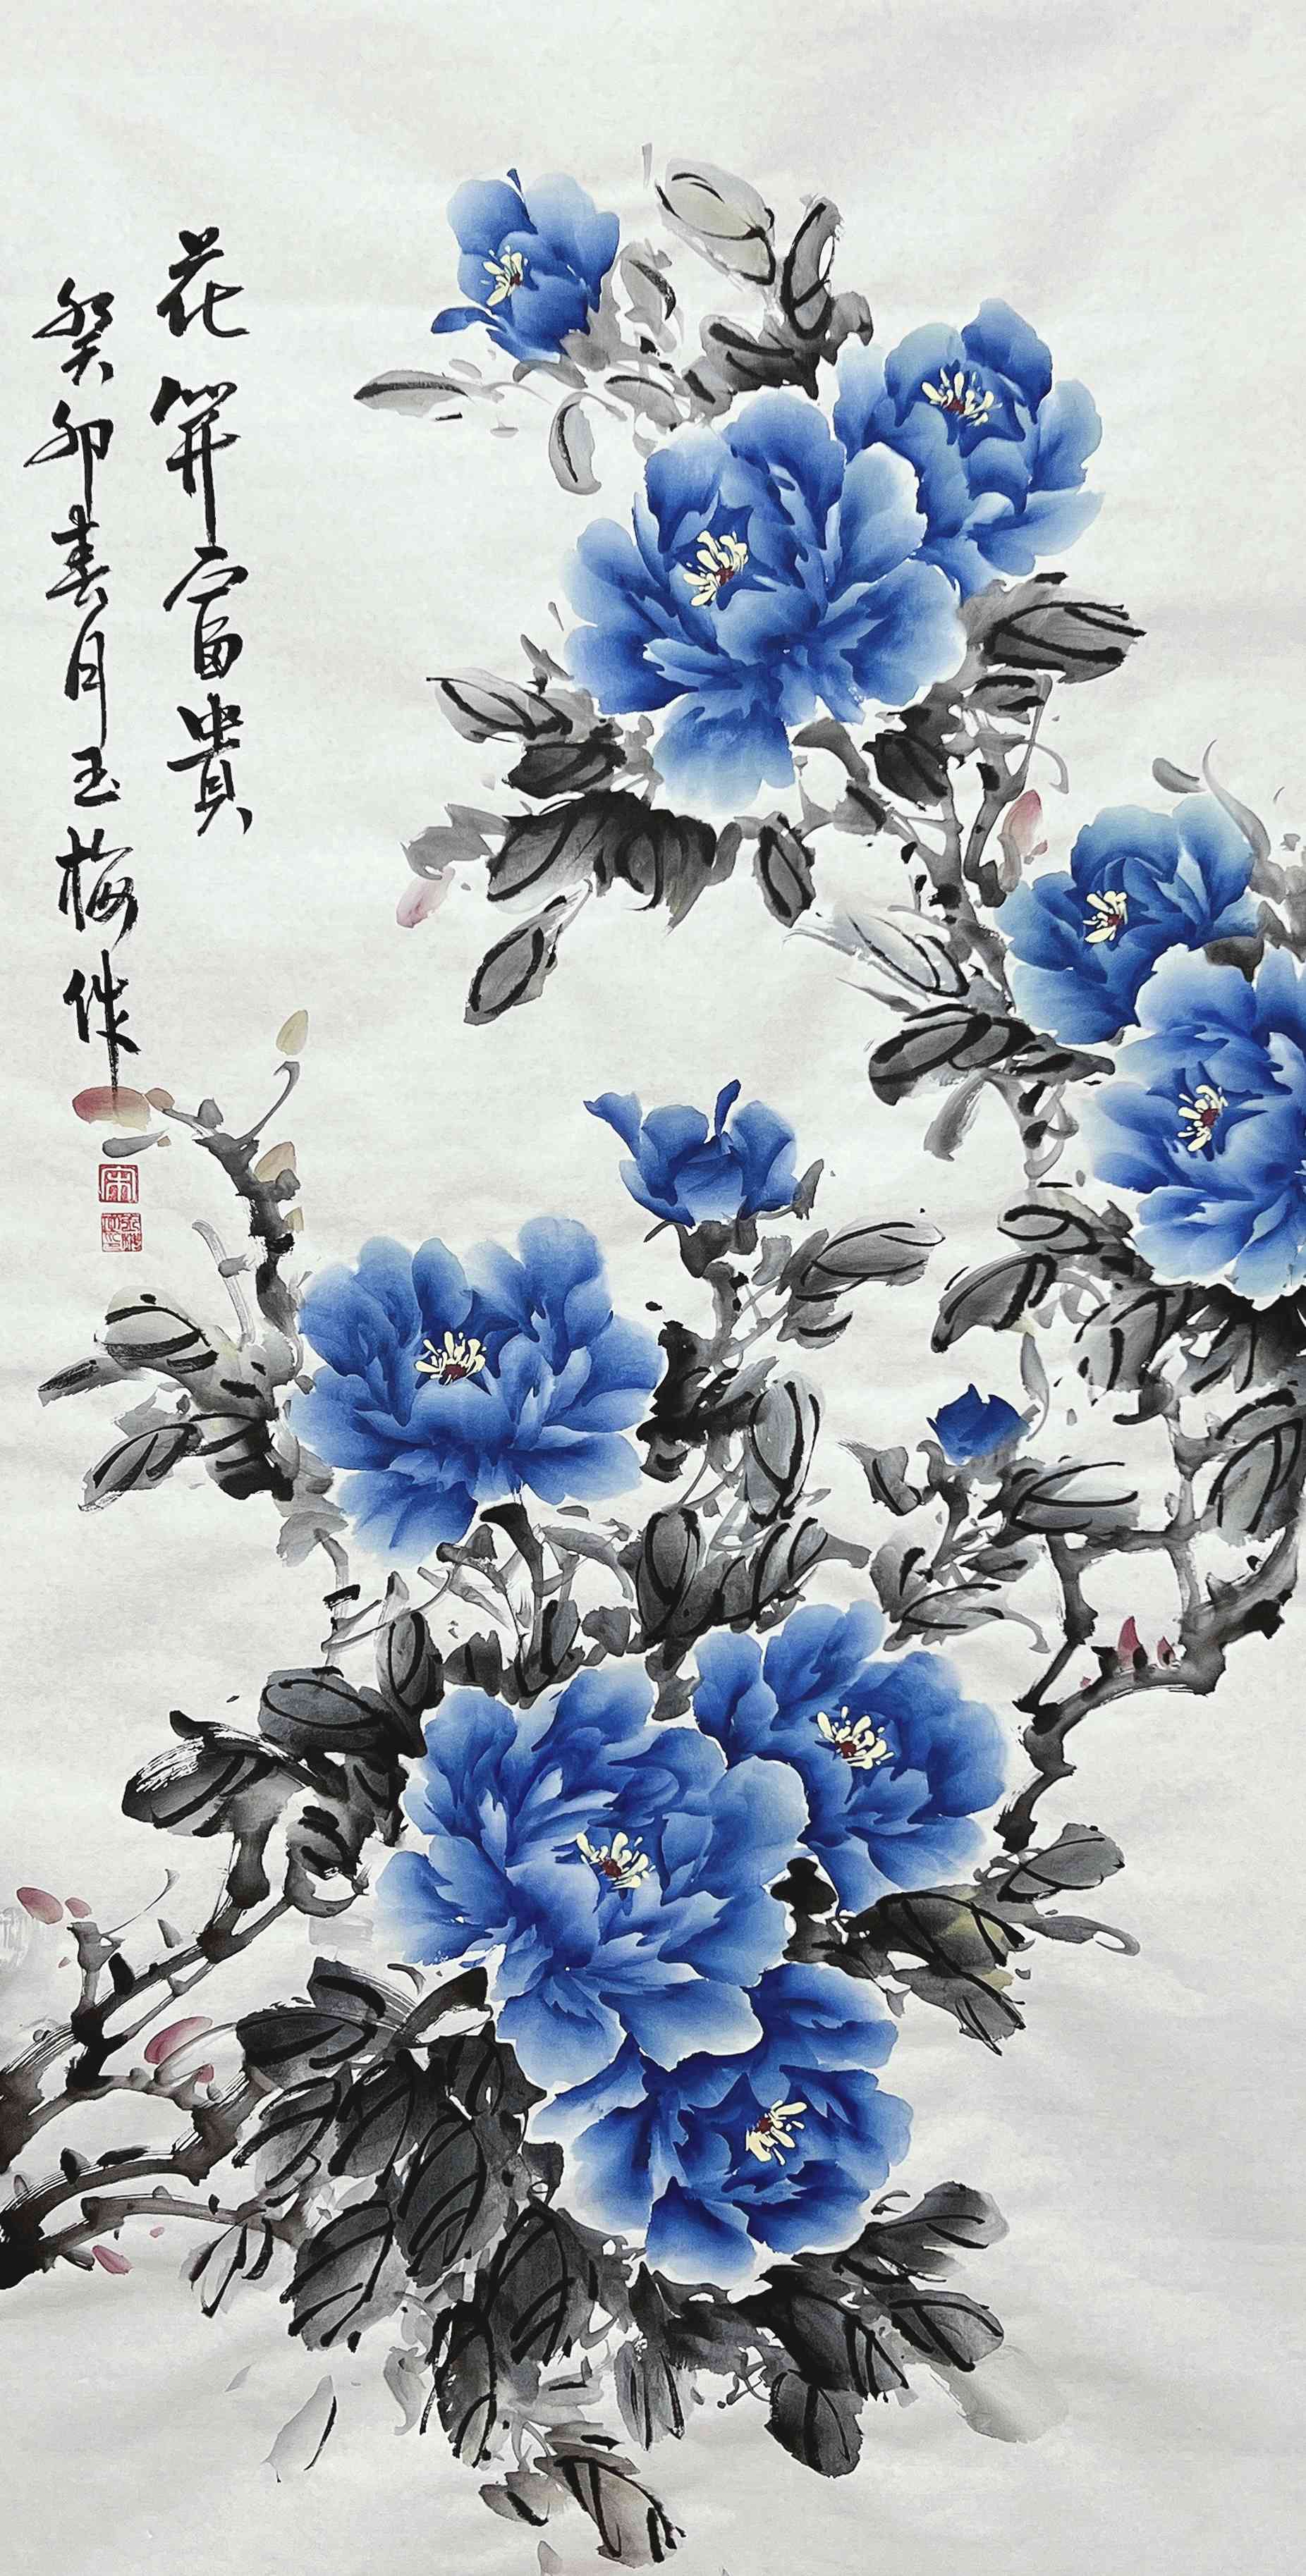 花開富貴
癸卯春月玉梅作
宋